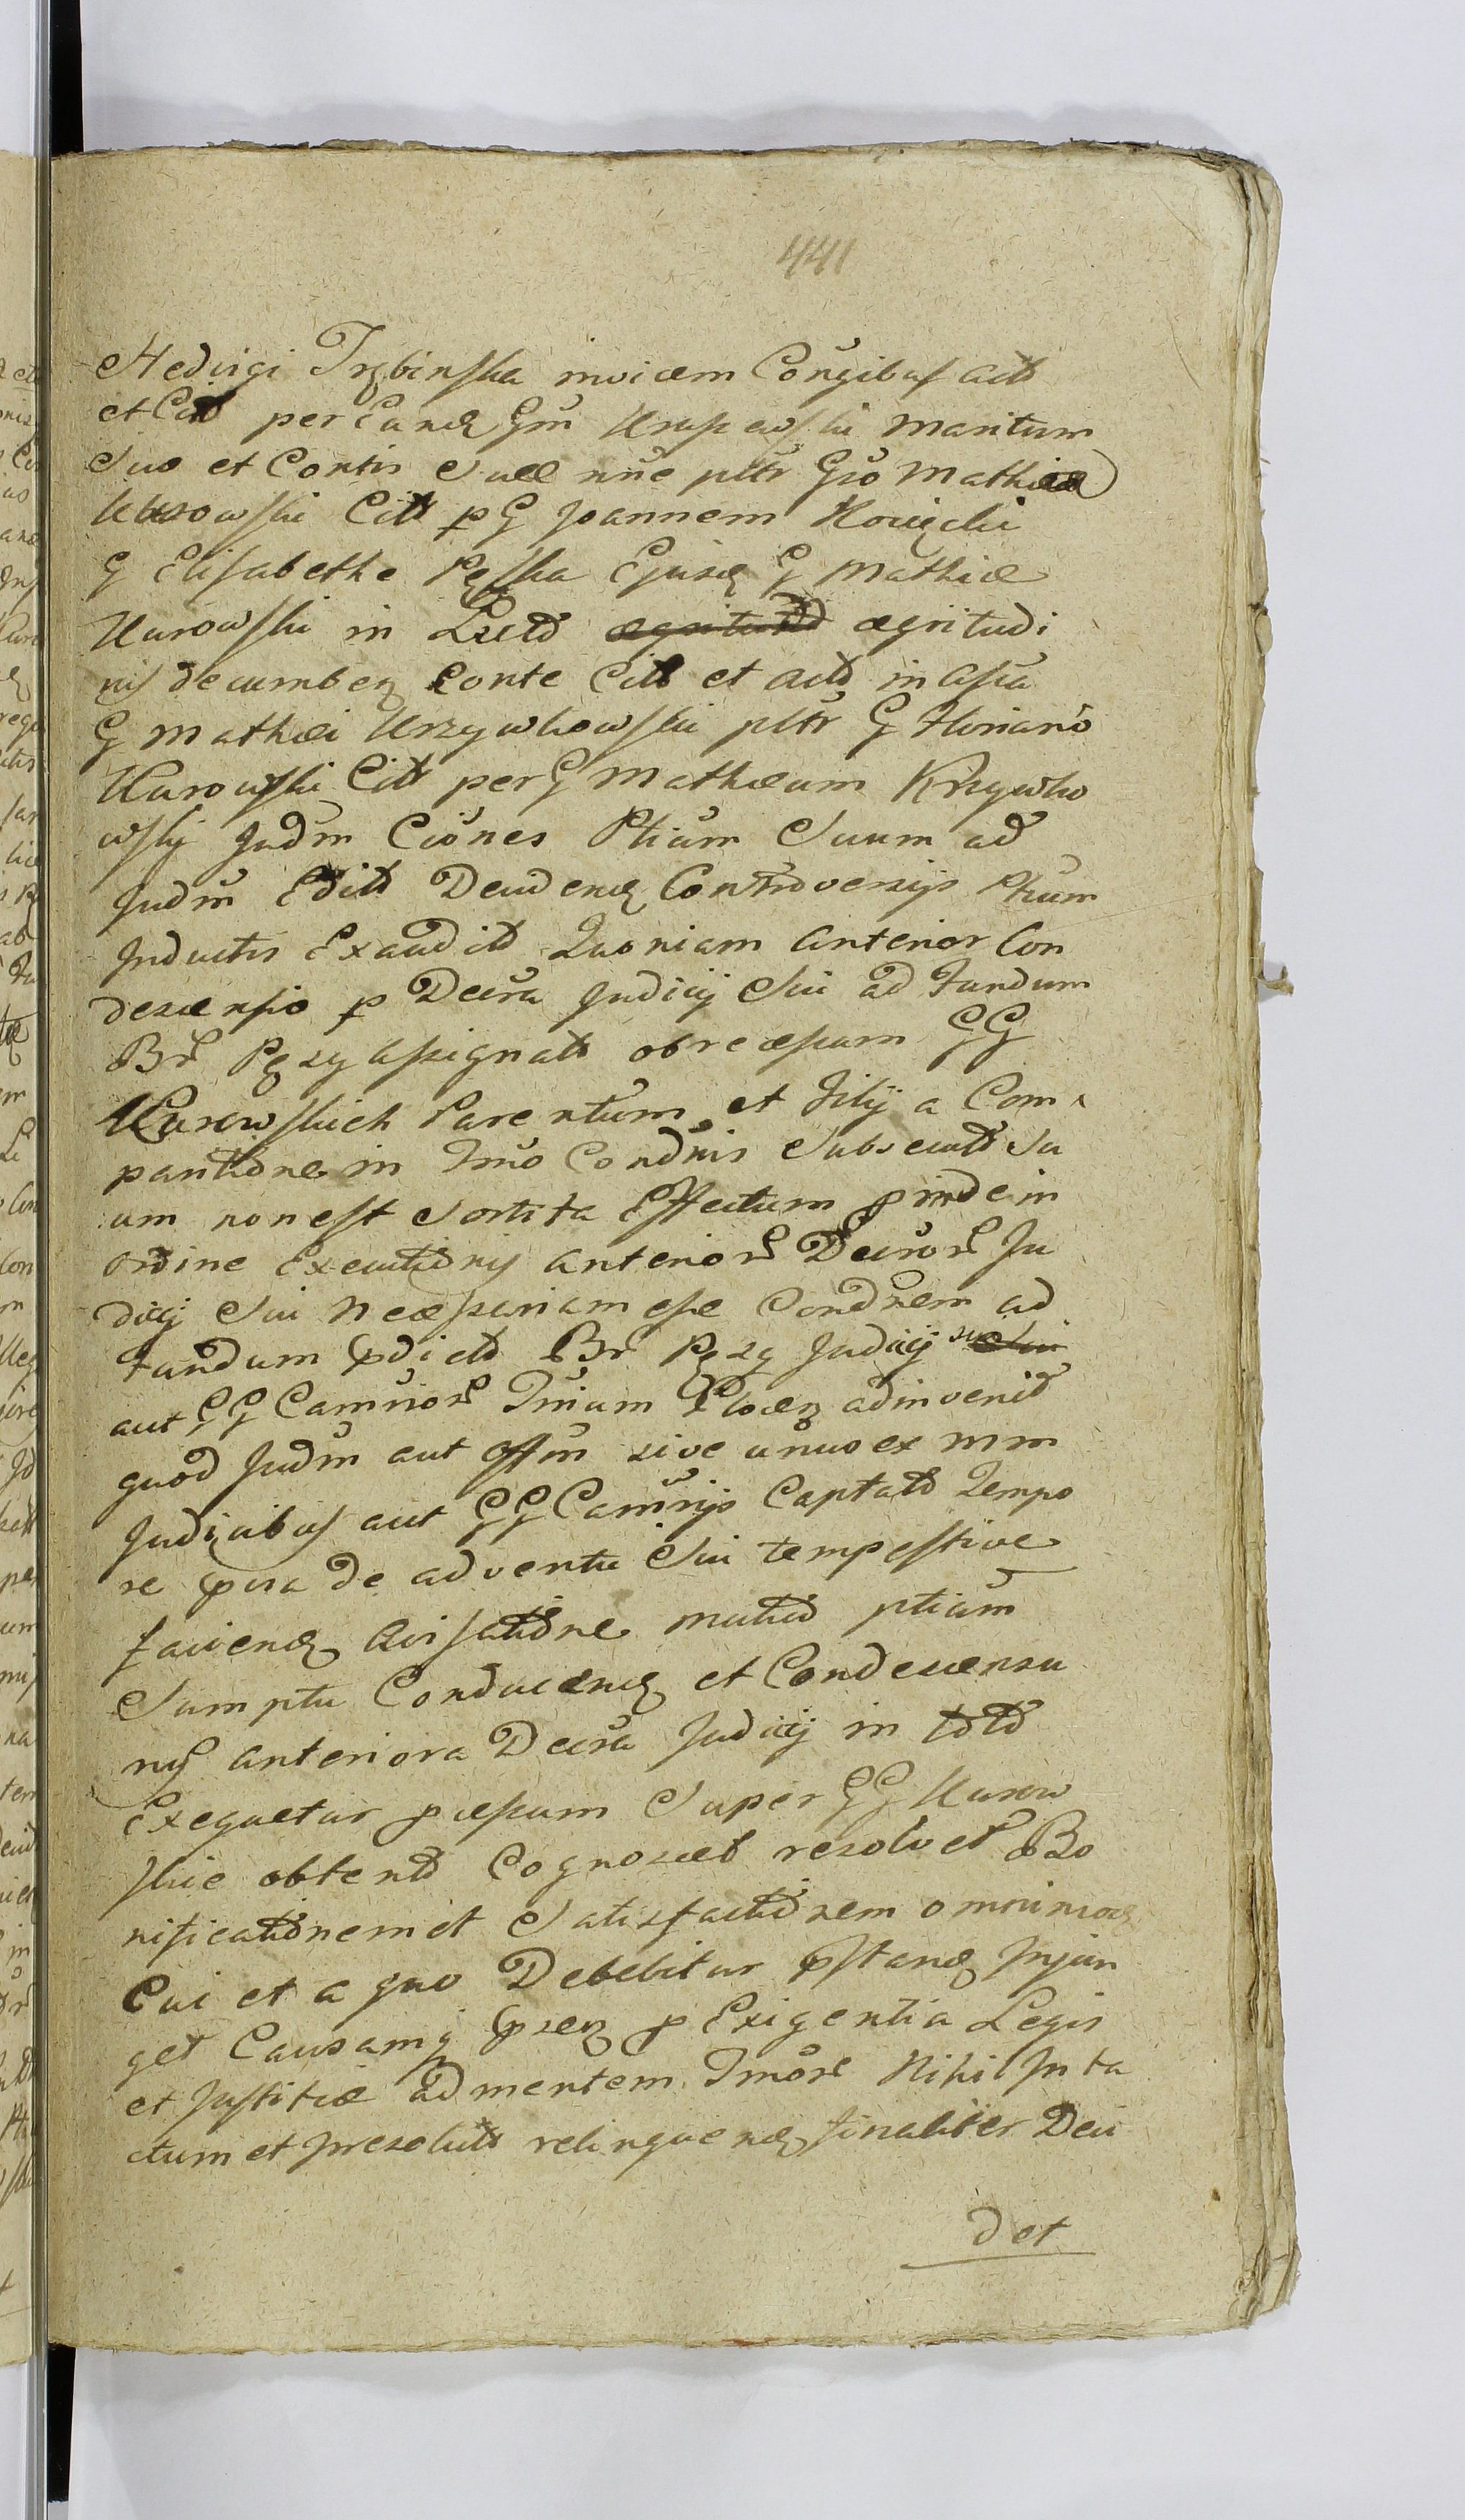 441
Hedvigi Trębinska invicem Coñgibus actõ
et Citt per Eand Gñu Krupewski Maritum
Suo et Contis Suæ nũc pltr Grõ Mathiæ
Kurowski Citt p G Joannem
G Elisabethe Pęska Ejusd G Mathiæ
Kurowski in Lectõ ægritudi
nis decumben Conte Citt et actõ in assia
G Mathæi Krzywkowski pltr G Floriano
Kurowski Citt per G Mathæum Krzywko
wskij Judm Ciones Ptium Suum ad
Judm Editt Deciden Controversijs Ptium
Inductis Exaudittõ Quoniam anterior Con
descensio p Decra Judicij Sui ad Fundum
Br Pęzy assignatt ob recessum GG
Kurowskich Parentum et Filij a Com
paritiõne in Tmo Condnis Subsecutt Su
um non est Sortita Effectum pinde in
ordine Executiõnis anterior Decror Ju
dicij Sui Necessariam esse Condnem ad
Fundum pdictt Br Pęzy Judicij sui
aut GG Camrior Tmium Plocen adinvenit
quod Judm aut Offm sive unus ex Mm
Judicibus aut GG Camrijs Captatt Tempo
re pvia de adventu Sui tempestive
facienda avisatiõne mutuõ ptium
Sumptu Conducend et Condescensu
rus anteriora Decra Judicij in tõtõ
Exequetur pcessum Super GG Kurow
skie obtentt Cognoscet resolvet Bo
nificatiõnem et Satisfactiõnem omnimod
Cui et a quo Debebitur pstand Injun
get Causamq psen p Exigentia Legis
et Justitiæ ad mentem Tmor Nihil Inta
ctum et Iresolutt relinquend finaliter Deci
det